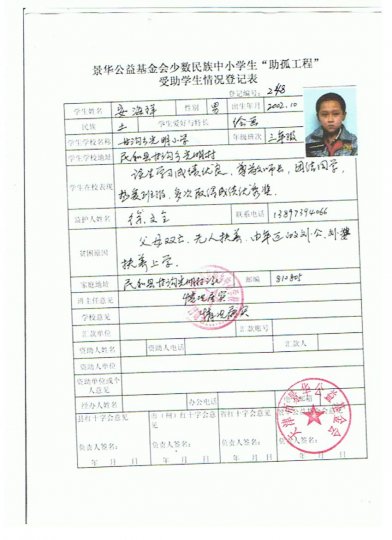 景华公益基金会少数民族中小学生“助孤工程”
受助学生情况登记表
登记编号：248
学生姓名 安海祥 性别 男 出生年月 2002.10
民族 土 学生爱好与特长 绘画
学生学校名称 甘沟乡光明小学 年级班次 三年级
学生学校地址 民和县甘沟乡光明村
学生在校表现 该生学习成绩优良，尊敬师长，团结同学，
热爱劳动，多次取得成绩优秀奖
监护人姓名 徐文全 联系电话 13897394066
贫困原因 父母双亡，无人扶养，由年迈的
扶养上学。
家庭地址 民和县甘沟光明村 邮编 810805
班主任意见 情况属实
学校意见 情况属实
汇款单位 汇款账号
资助人姓名 资助人电话 汇款人
资助人单位
资助单位或个
人意见
经办人姓名 办公电话
县红十字会意见 市（州）红十字会意见 省红十字会意见
负责人签名： 负责人签名： 负责人签名：
年 月 日 年 月 日 年 月 日 年 月 日
天津市景华公益基金会